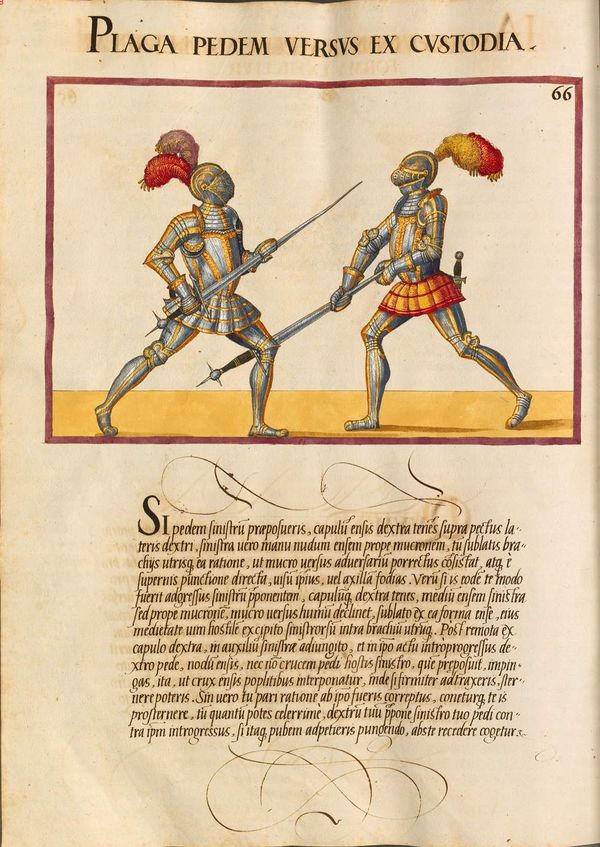 PLAGA PEDEM VERSVS EX CVSTODIA.
66
SI pedem sinistrũ præposueris, capulũ ensis dextra tenẽs supra pectus la-
teris dextri, sinistra uero manu nudum ensem prope mucronem, tũ sublatis bra-
chijs utrisq, ea ratione, ut mucro versus aduersariũ porrectus cõsistat, atq, è
supernis punctione directa, uisũ ipsius, uel axillã fodias. Verũ si is eodẽ te modo
fuerit adgressus sinistrũ pponentem, capulũq, dextra tenes, mediũ ensem sinistra
sed prope mucronẽ, mucro versus humũ declinet, sublato ex ea forma ense, eius
medietate uim hostilẽ excipito sinistrorsũ intra brachiũ utrũq. Post remota ex
capulo dextra, in auxiliũ sinistræ adiungito, et in ipo actu introprogressus de-
xtro pede, nodũ ensis, nec nõ crucem pedi hostis sinistro, quẽ preposuit, impin-
gas, ita, ut crux ensis poplitibus interponatur, inde si firmiter adtraxeris, ster-
nere poteris. Sin uero tu pari ratione ab ipo fueris correptus, coneturq, te is
prosternere, tũ quantũ potes celerrimè, dextrũ tuũ ppone sinistro tuo pedi con-
tra ipm introgressus, si itaq, pubem adpetieris pungendo, abs te recedere cogetur.